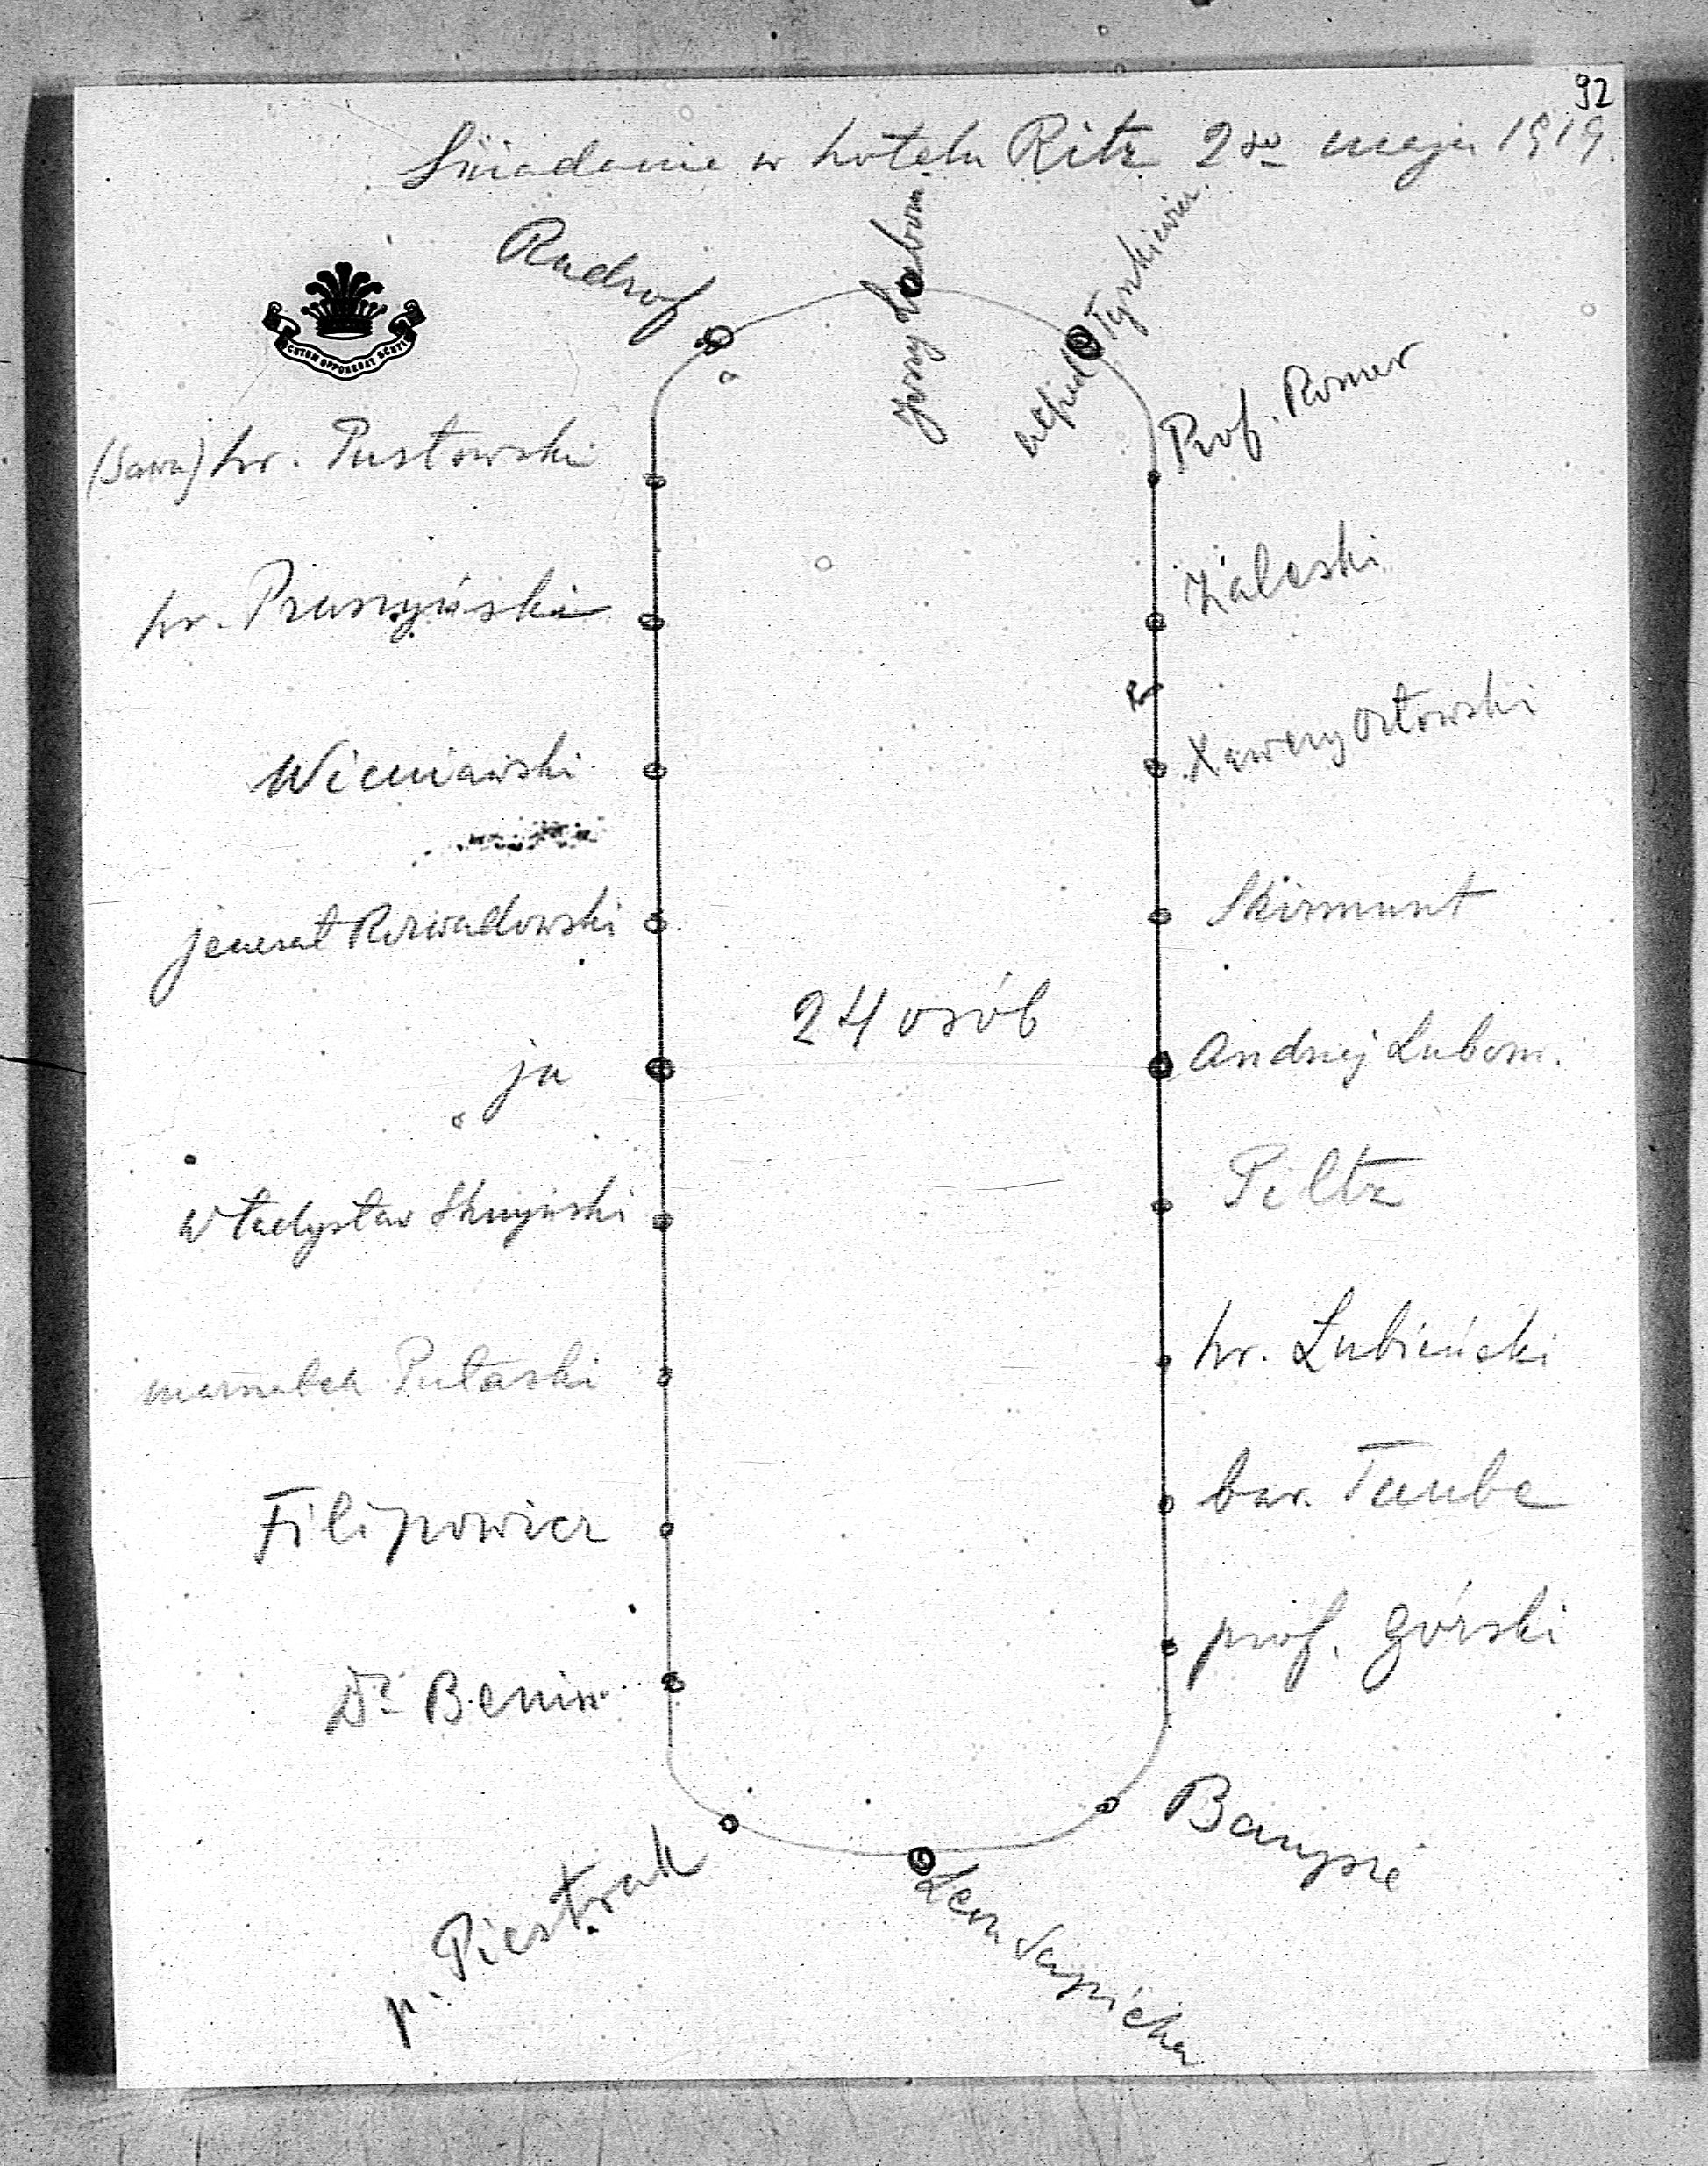 92
Śniadanie w hotelu Ritz 2go maja 1919.
Radrof
Jerzy Lubom.
Alfred Tyszkiewicz
Prof. Romer
(Sawa) hr. Pusłowski
hr. Pruszyński
Zaleski
Wieniawski
Xawery Orłowski
jenerał Rozwadowski
Skirmunt
24 osób
ja
Andrzej Lubom.
Władysław Skrzyński
Piltz
marszałek Pułaski
hr. Łubieński
Filipowicz
bar. Taube
prof. Górski
Dr Benis
p. Piestrak
Leon Sapieha